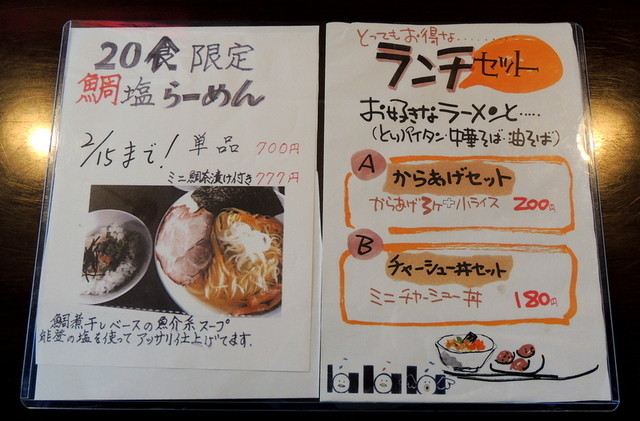 20食限定
鯛塩らーめん
2/15まで! 単品 700円
ミニ鯛茶漬け付き 777円
鯛煮干しベースの魚介系スープ
能登の塩を使ってアッサリ仕上げてます.
とってもお得な………
ランチセット
お好きなラーメンと…..
(とりパイタン・中華そば・油そば)
A
からあげセット
からあげ3ヶ+小ライス 200円
B
チャーシュー丼セット
ミニチャーシュー丼 180円
lalala